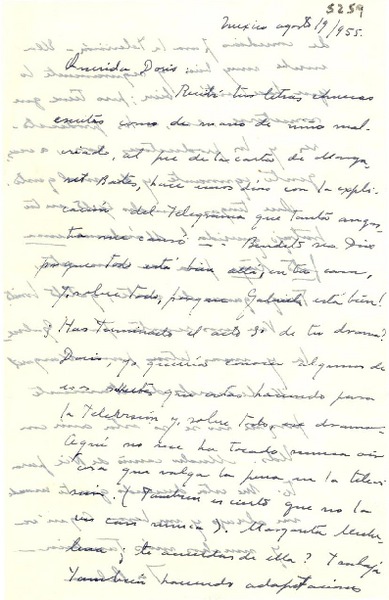 5259
Mexico agosto 9/955.
Querida Doris:
Recibí tus letras chuecas
escritas como de mano de niño mal-
criado, al pie de la carta de Marga-
ret Bates, hace unos días con la expli-
cación del telegrama que tanta angus-
tia me causó. Bendito sea Dios
porque todo está bien allí, en tu casa,
y sobre todo, porque Gabriela está bien!
¿Has terminado el acto 3o de tu drama?
Doris, yo quería conocer algunos de
esos que estás haciendo para
la Televisión y, sobre todo, ese drama.
Aquí no me ha tocado nunca oír
cosa que valga la pena en la televi-
sión. (También es cierto que no la
veo casi nunca). Margarita
¿te acuerdas de ella? Trabaja
también haciendo adaptaciones